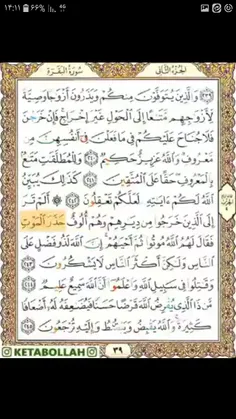 ۱۴:۱۱ ۶۶%
الجزء الثانی سورة البقرة
وَالَّذِينَ يُتَوَفَّوْنَ مِنكُمْ وَيَذَرُونَ أَزْوَاجًا وَصِيَّةً
لِأَزْوَاجِهِم مَّتَاعًا إِلَى الْحَوْلِ غَيْرَ إِخْرَاجٍ فَإِنْ خَرَجْنَ
فَلَا جُنَاحَ عَلَيْكُمْ فِي مَا فَعَلْنَ فِي أَنفُسِهِنَّ مِن
مَّعْرُوفٍ وَاللَّهُ عَزِيزٌ حَكِيمٌ ۝٢٤٠ وَلِلْمُطَلَّقَاتِ مَتَاعٌ
بِالْمَعْرُوفِ حَقًّا عَلَى الْمُتَّقِينَ ۝٢٤١ كَذَٰلِكَ يُبَيِّنُ
اللَّهُ لَكُمْ آيَاتِهِ لَعَلَّكُمْ تَعْقِلُونَ ۝٢٤٢ أَلَمْ تَرَ
إِلَى الَّذِينَ خَرَجُوا مِن دِيَارِهِمْ وَهُمْ أُلُوفٌ حَذَرَ الْمَوْتِ
فَقَالَ لَهُمُ اللَّهُ مُوتُوا ثُمَّ أَحْيَاهُمْ إِنَّ اللَّهَ لَذُو فَضْلٍ عَلَى
النَّاسِ وَلَٰكِنَّ أَكْثَرَ النَّاسِ لَا يَشْكُرُونَ ۝٢٤٣
وَقَاتِلُوا فِي سَبِيلِ اللَّهِ وَاعْلَمُوا أَنَّ اللَّهَ سَمِيعٌ عَلِيمٌ ۝٢٤٤
مَّن ذَا الَّذِي يُقْرِضُ اللَّهَ قَرْضًا حَسَنًا فَيُضَاعِفَهُ لَهُ أَضْعَافًا
كَثِيرَةً وَاللَّهُ يَقْبِضُ وَيَبْسُطُ وَإِلَيْهِ تُرْجَعُونَ ۝٢٤٥
KETABOLLAH ۳۹ KETABOLLAH